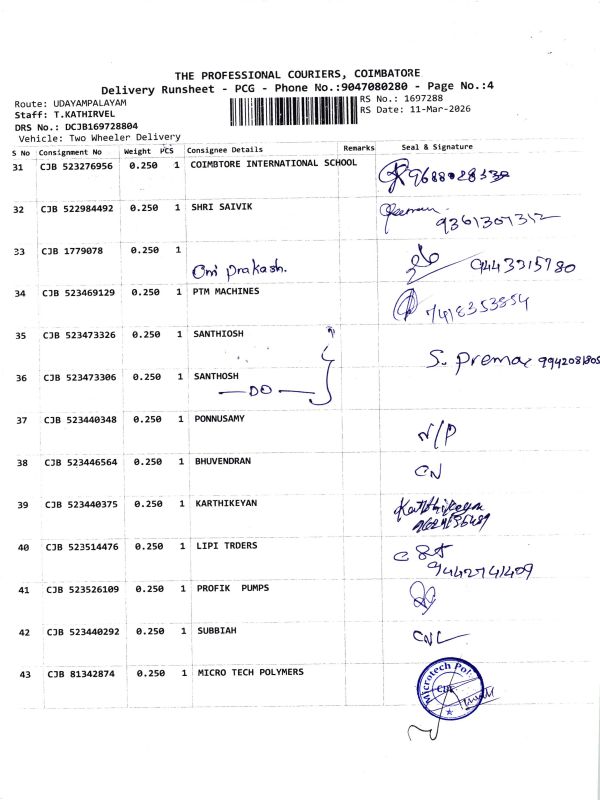 THE PROFESSIONAL COURIERS, COIMBATORE
Delivery Runsheet - PCG - Phone No.:9047080280 - Page No.:4
Route: UDAYAMPALAYAM
RS No.: 1697288
Staff: T.KATHIRVEL
RS Date: 11-Mar-2026
DRS No.: DCJB169728804
Vehicle: Two Wheeler Delivery
S No Consignment No Weight PCS Consignee Details Remarks Seal & Signature
31 CJB 523276956 0.250 1 COIMBTORE INTERNATIONAL SCHOOL
32 CJB 522984492 0.250 1 SHRI SAIVIK 9361307312
33 CJB 1779078 0.250 1
Omi prakash. 9443315780
34 CJB 523469129 0.250 1 PTM MACHINES 7418353854
35 CJB 523473326 0.250 1 SANTHIOSH
S. Prema 9942081805
36 CJB 523473306 0.250 1 SANTHOSH
DO
37 CJB 523440348 0.250 1 PONNUSAMY N/P
38 CJB 523446564 0.250 1 BHUVENDRAN CN
39 CJB 523440375 0.250 1 KARTHIKEYAN Karthikeyan
40 CJB 523514476 0.250 1 LIPI TRDERS
9442741409
41 CJB 523526109 0.250 1 PROFIK PUMPS
42 CJB 523440292 0.250 1 SUBBIAH CNL
43 CJB 81342874 0.250 1 MICRO TECH POLYMERS Microtech Pol
CBE